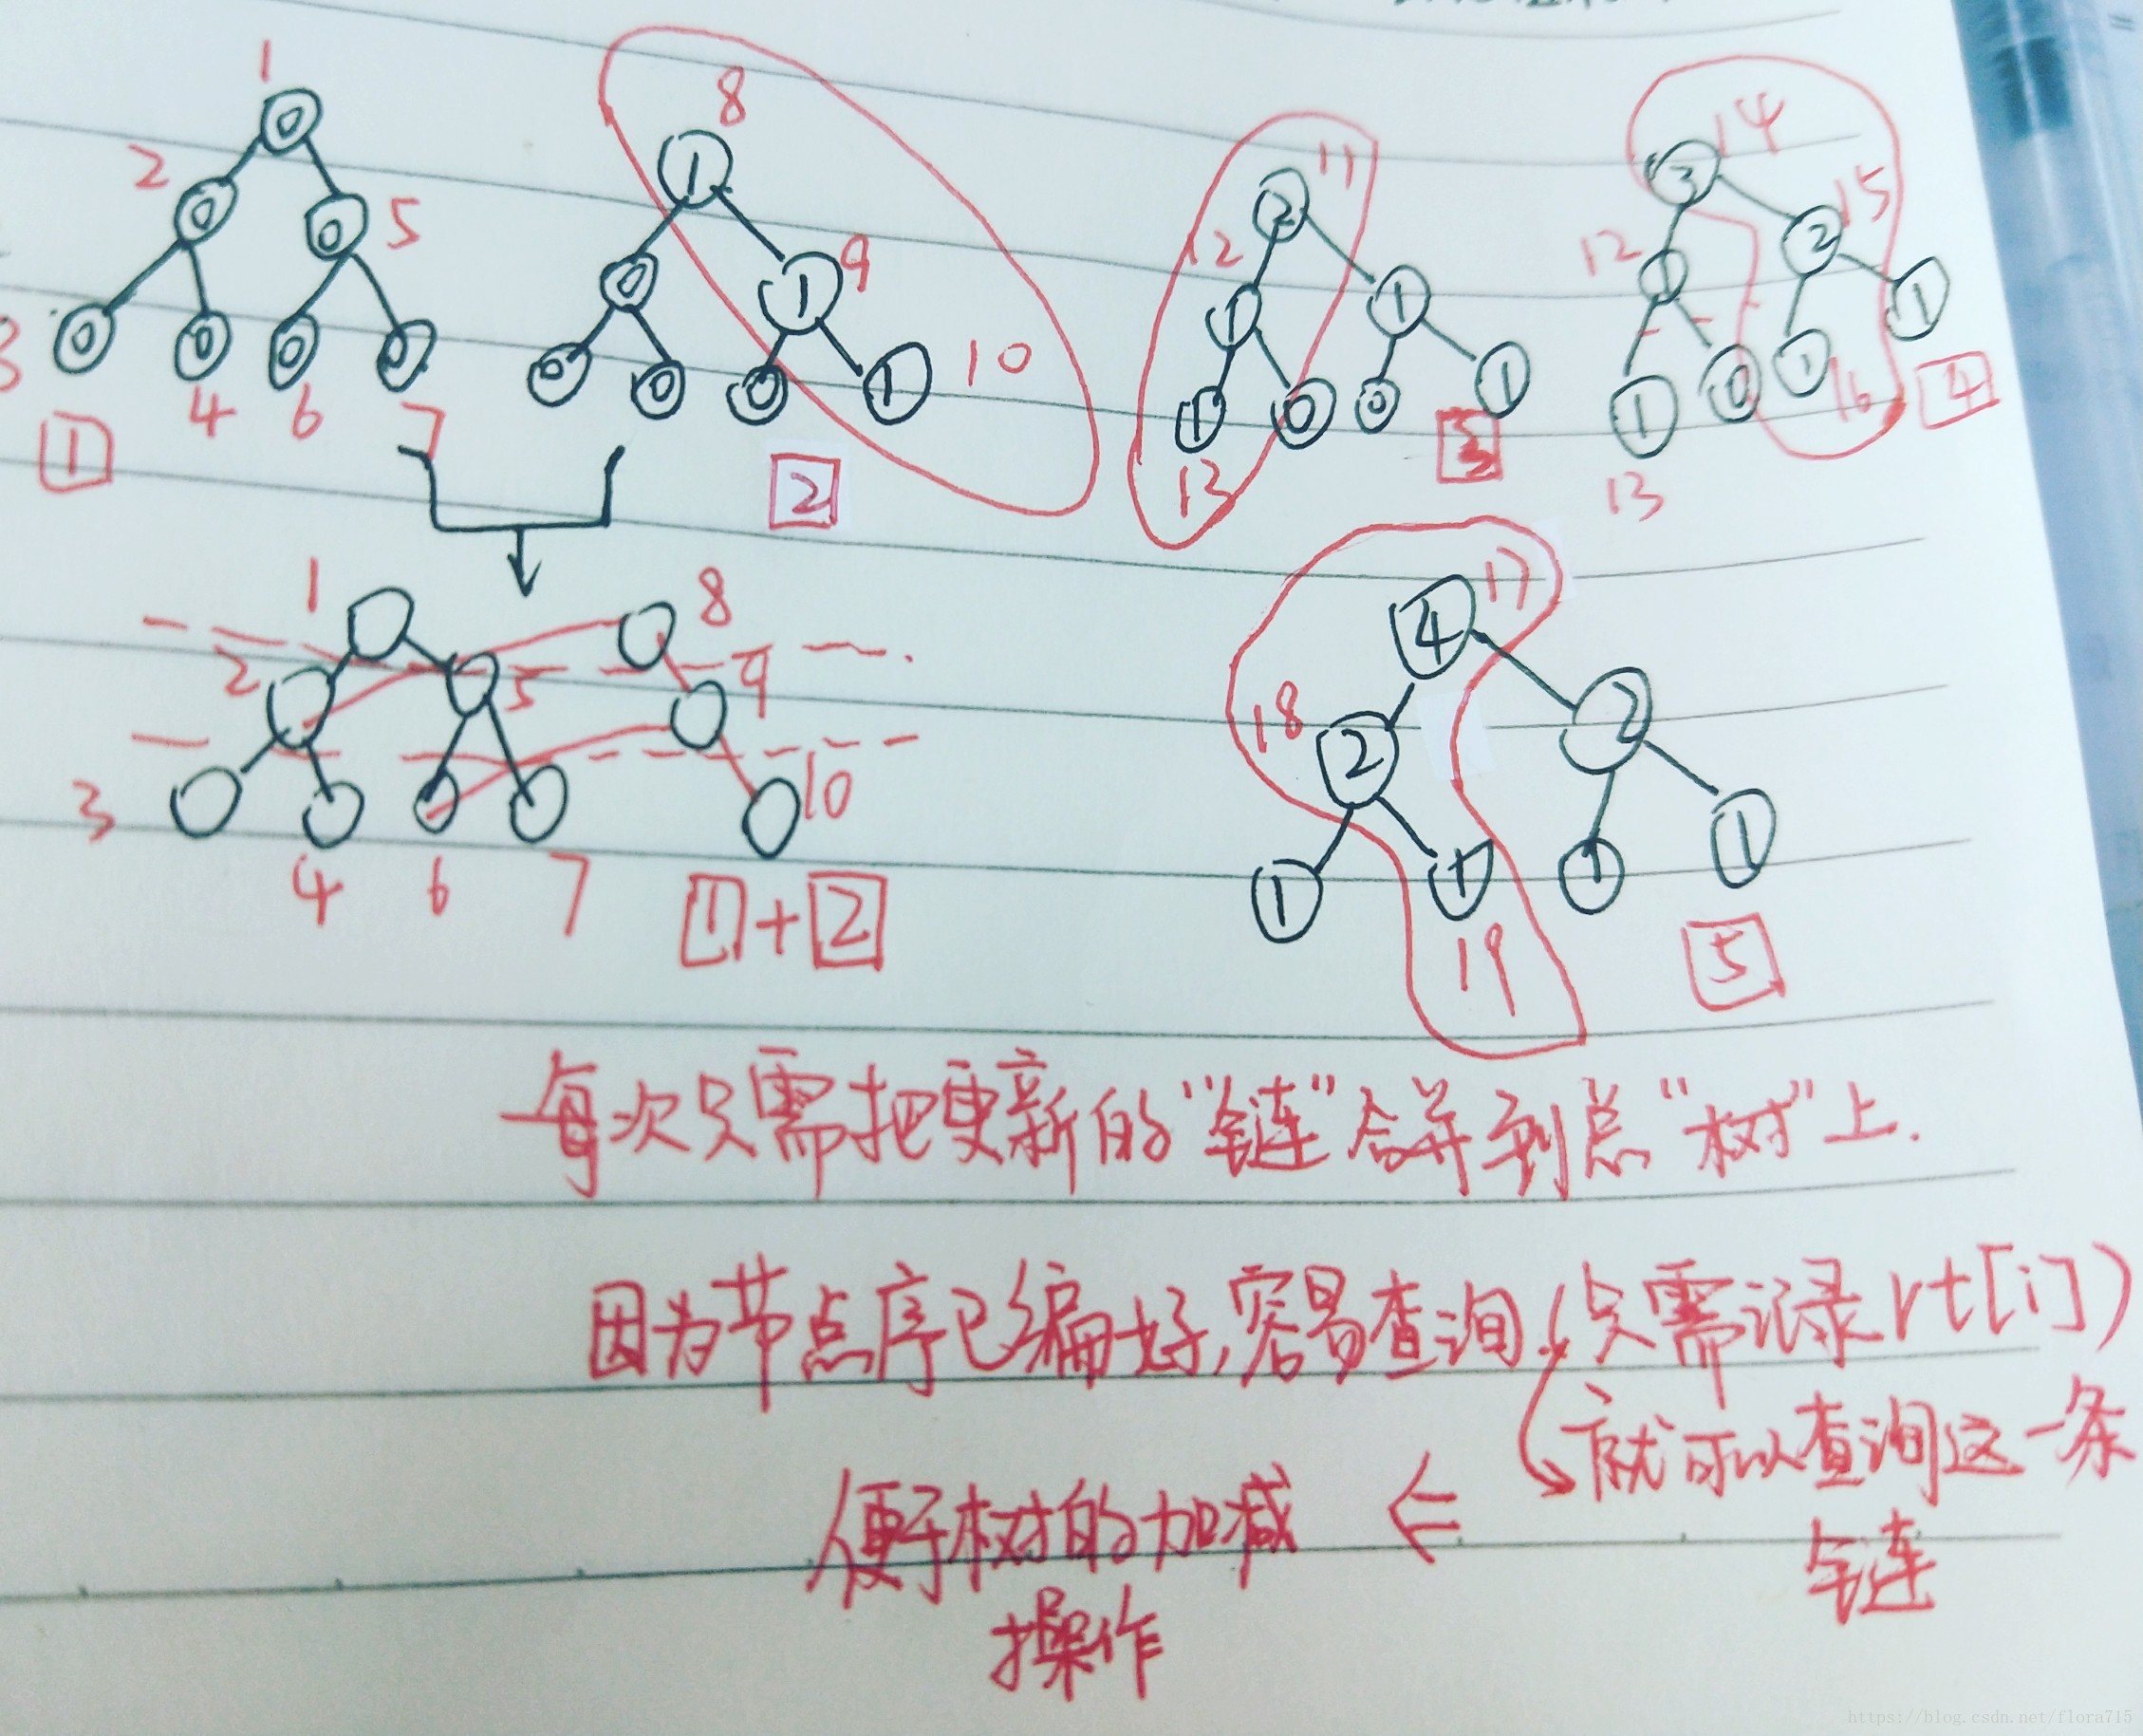 1
8
11
14
0
1
2
3
2
5
9
12
12
15
0
0
0
1
1
1
1
2
1
3
0
0
0
0
0
0
0
1
10
1
0
0
1
1
0
1
16
4
6
7
13
13
1
2
3
4
1
8
17
4
2
5
9
18
2
2
3
10
1
1
1
1
4
6
7
1+2
19
5
每次只需把更新的“链”合并到总“树”上.
因为节点序已编好,容易查询.(只需记录rt[i])
就可以查询这一条
链
便于树的加减
操作
https://blog.csdn.net/flora715